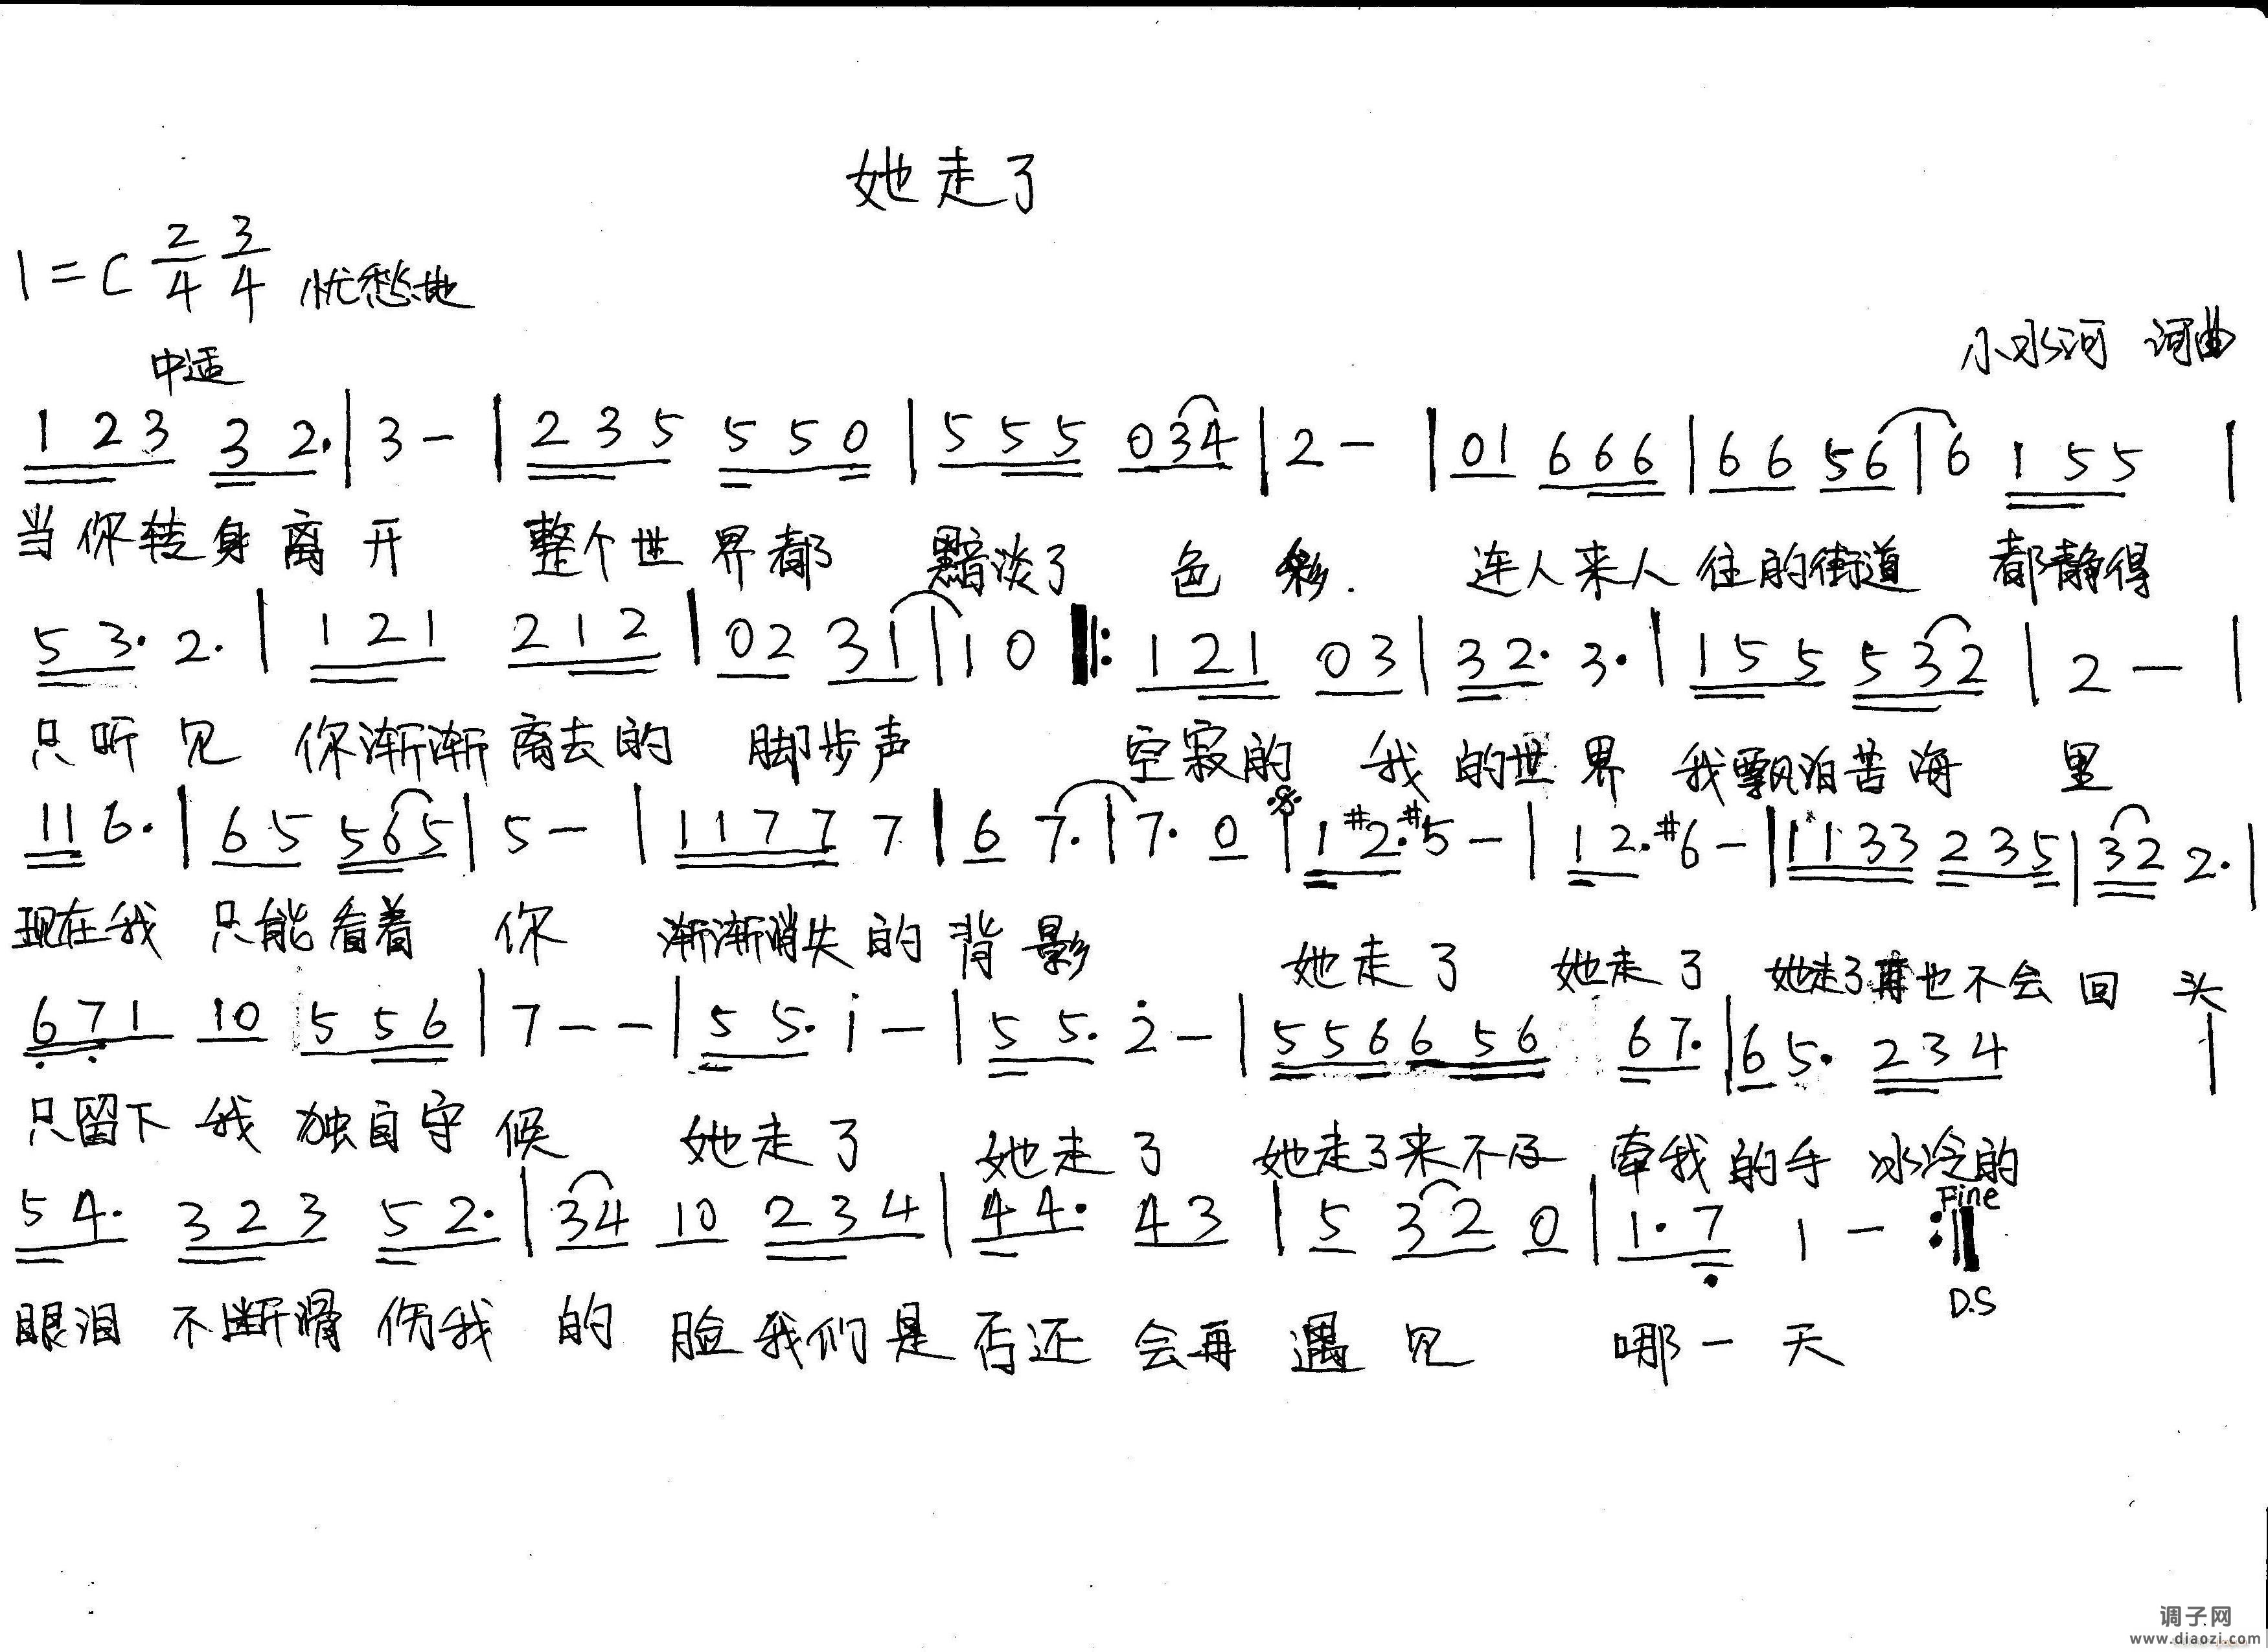 她走了
1=C 2/4 3/4 忧愁地
小水河 词曲
中适
1 2 3 3 2. | 3 - | 2 3 5 5 5 0 | 5 5 5 0 3 4 | 2 - | 0 1 6 6 6 | 6 6 5 6 | 6 1 5 5 |
当你转身离开 整个世界都 黯淡了 色彩. 连人来人往的街道 都静得
5 3. 2. | 1 2 1 2 1 2 | 0 2 3 1 | 1 0 |: 1 2 1 0 3 | 3 2. 3. | 1 5 5 5 3 2 | 2 - |
只听见 你渐渐离去的 脚步声 空寂的 我的世界 我飘泊苦海 里
1 1 6. | 6 5 5 6 5 | 5 - | 1 1 7 7 7 | 6 7. | 7. 0 | 1 #2. #5 - | 1 2. #6 - | 1 1 3 3 2 3 5 | 3 2 2. |
现在我 只能看着 你 渐渐消失的背影 她走了 她走了 她走了再也不会回头
6 7 1 1 0 5 5 6 | 7 - - | 5 5. i - | 5 5. 2 - | 5 5 6 6 5 6 6 7. | 6 5. 2 3 4 |
只留下我 独自守候 她走了 她走了 她走了来不及 牵我的手 冰冷的
5 4. 3 2 3 5 2. | 3 4 1 0 2 3 4 | 4 4. 4 3 | 5 3 2 0 | 1. 7 1 - :| Fine
D.S
眼泪 不断滑伤我 的 脸我们是否还 会再遇见 哪一天
调子网
www.diaozi.com